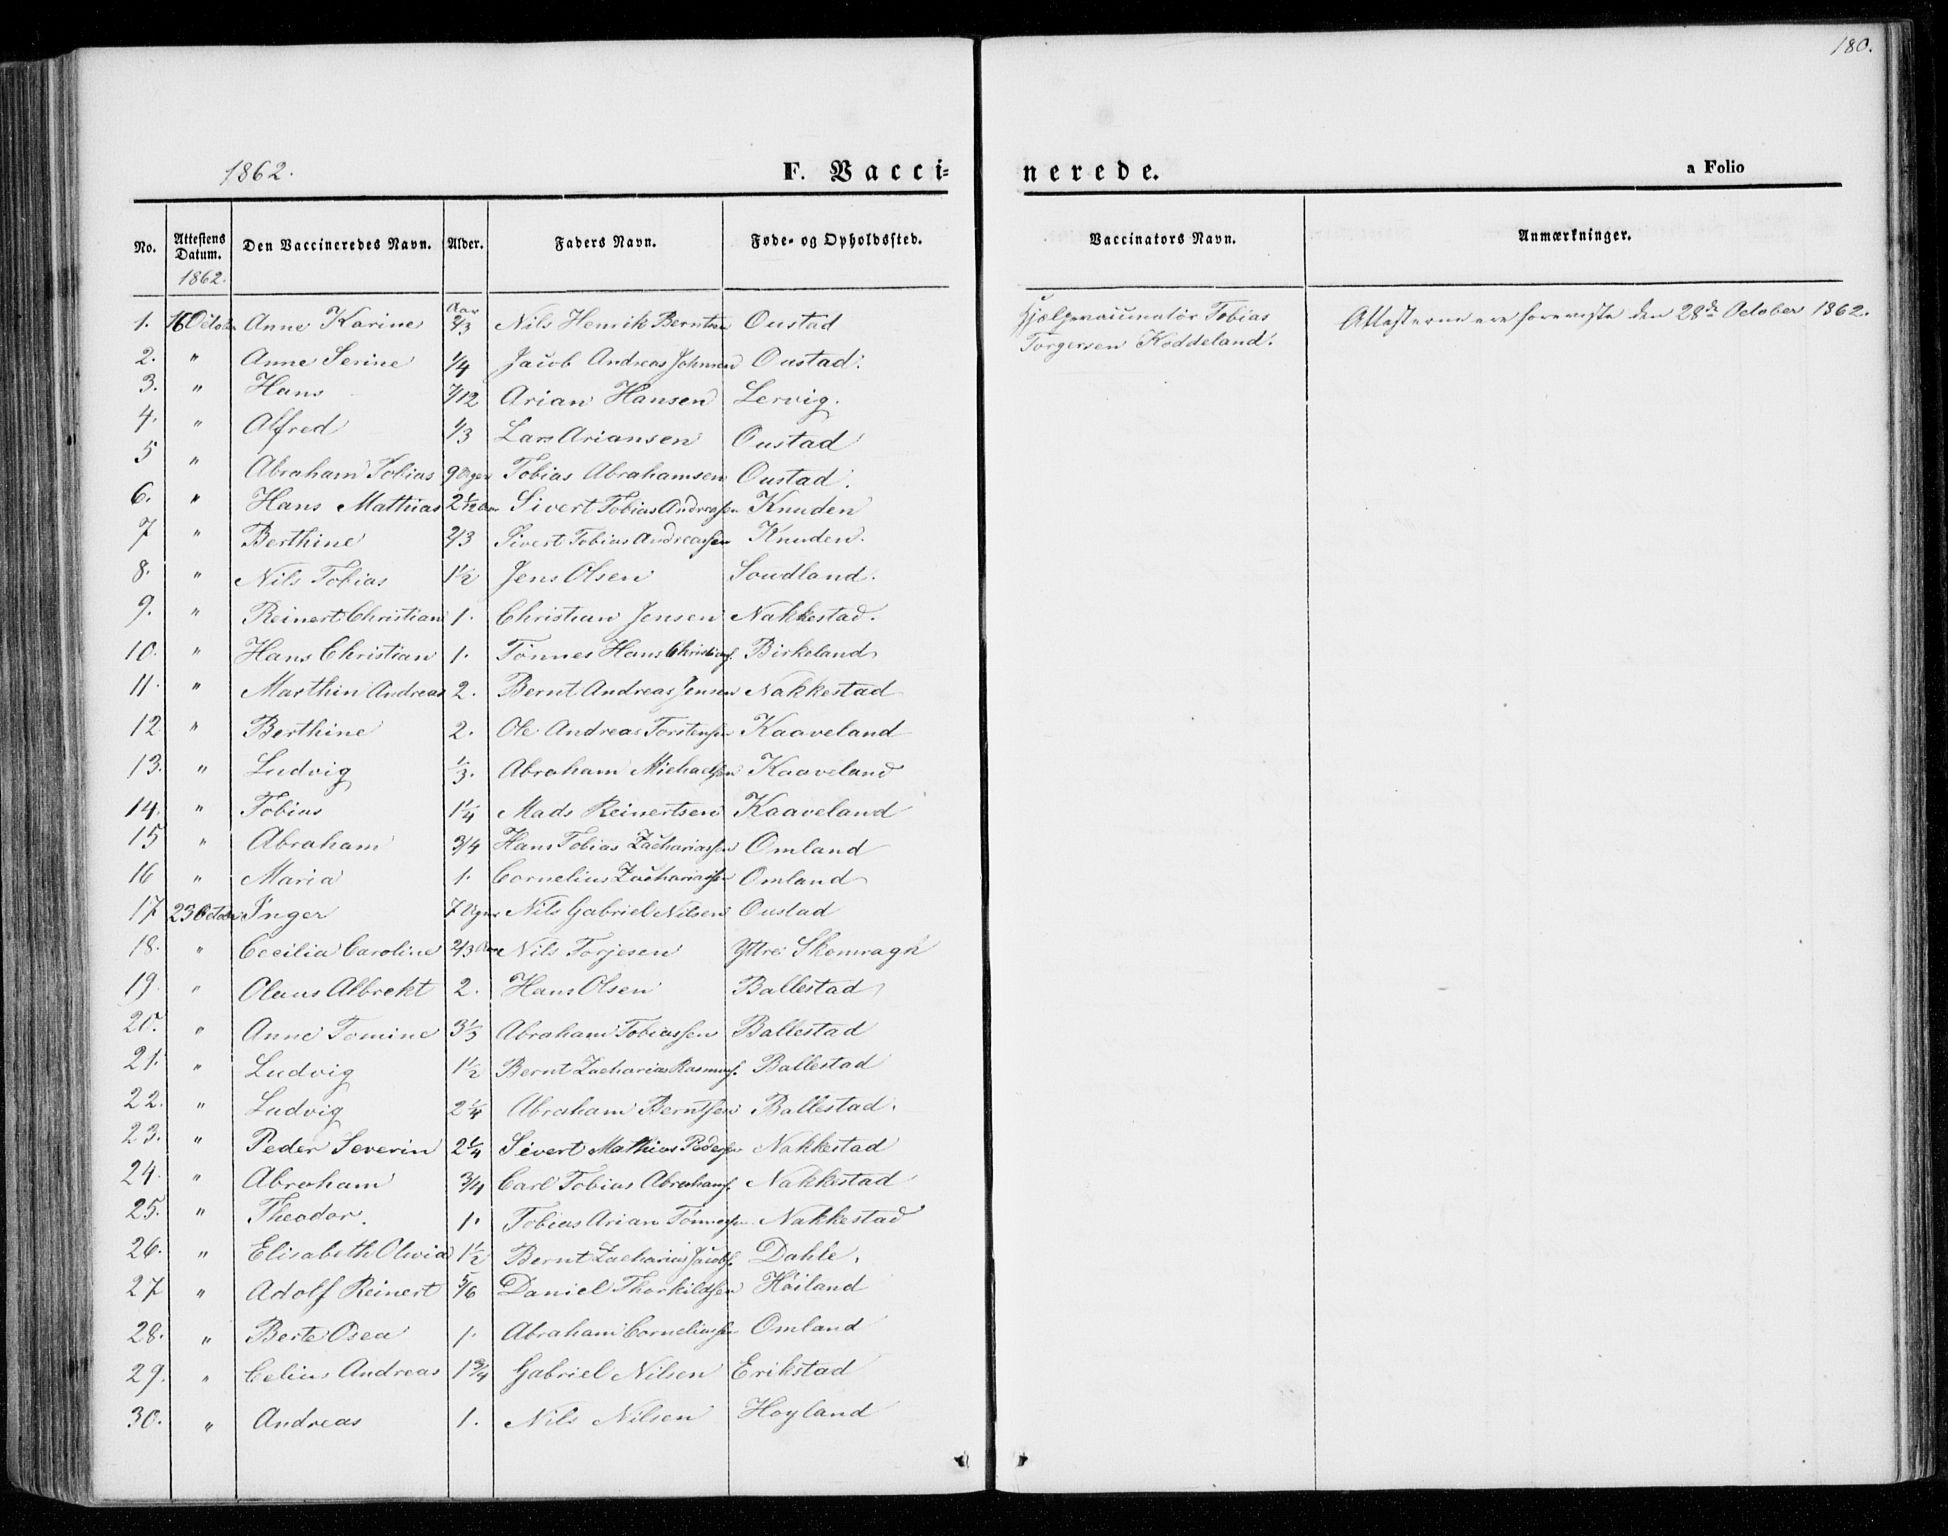 180.
1862.
F. Vaccinerede.
a Folio
No. Attestens Datum. Den Vaccineredes Navn. Alder. Faders Navn. Føde- og Opholdssted. Vaccinators Navn. Anmærkninger.
1862.
1. 16 October Anne Karine Aar 2/3 Nils Henrik Berntsen Oustad Hjælpevaccinatør Tobias Attesterne ere foreviste den 28de October 1862.
2. " Anne Serine 1/4 Jacob Andreas Johnsen Oustad. Torgersen Koddeland.
3. " Hans 7/12 Arian Hansen Lervig.
4. " Alfred 1/3 Lars Ariansen Oustad
5 " Abraham Tobias 9 Uger Tobias Abrahamsen Oustad.
6. " Hans Mathias 2 1/2 Aar Sivert Tobias Andreassen Knuden
7 " Berthine 2/3 Sivert Tobias Andreassen Knuden.
8. " Nils Tobias 1 1/2 Jens Olsen Soudland.
9. " Reinert Christian 1. Christian Jensen Nakkestad.
10. " Hans Christian 1. Tønnes Hans Christians. Birkeland
11. " Marthin Andreas 2. Bernt Andreas Jensen Nakkestad
12 " Berthine 2. Ole Andreas Torstensen Kaaveland
13. " Ludvig 1/3. Abraham Michaelsen Kaaveland
14. " Tobias 1 1/4 Mads Reinertsen Kaaveland
15 " Abraham 3/4 Hans Tobias Zachariassen Omland
16 " Maria 1. Cornelius Zachariassen Omland
17 23 October Inger 7 Uger Nils Gabriel Nilsen Oustad
18. " Cecilia Caroline 2/3 Aar Nils Torjesen Yttre Skomragh
19. " Olaus Albrekt 2. Hans Olsen Ballestad
20. " Anne Tomine 3 1/3 Abraham Tobiassen Ballestad
21. " Ludvig 1 1/2 Bernt Zacharias Rasmuss. Ballestad
22. " Ludvig 2 1/4 Abraham Berntsen Ballestad.
23. " Peder Severin 2 1/4 Sivert Mathias Pedersen Nakkestad
24. " Abraham 3/4 Carl Tobias Abrahams. Nakkestad
25. " Theodor. 1. Tobias Arian Tønnessen Nakkestad
26. " Elisabeth Olivia 1 1/2 Bernt Zacharias Jacobs. Dahle.
27 " Adolf Reinert 5/6 Daniel Thorkildsen Høiland
28. " Berte Osea 1. Abraham Corneliussen Omland
29. " Celius Andreas 1 3/4 Gabriel Nilsen Erikstad
30. " Andreas 1. Nils Nilsen Hoyland